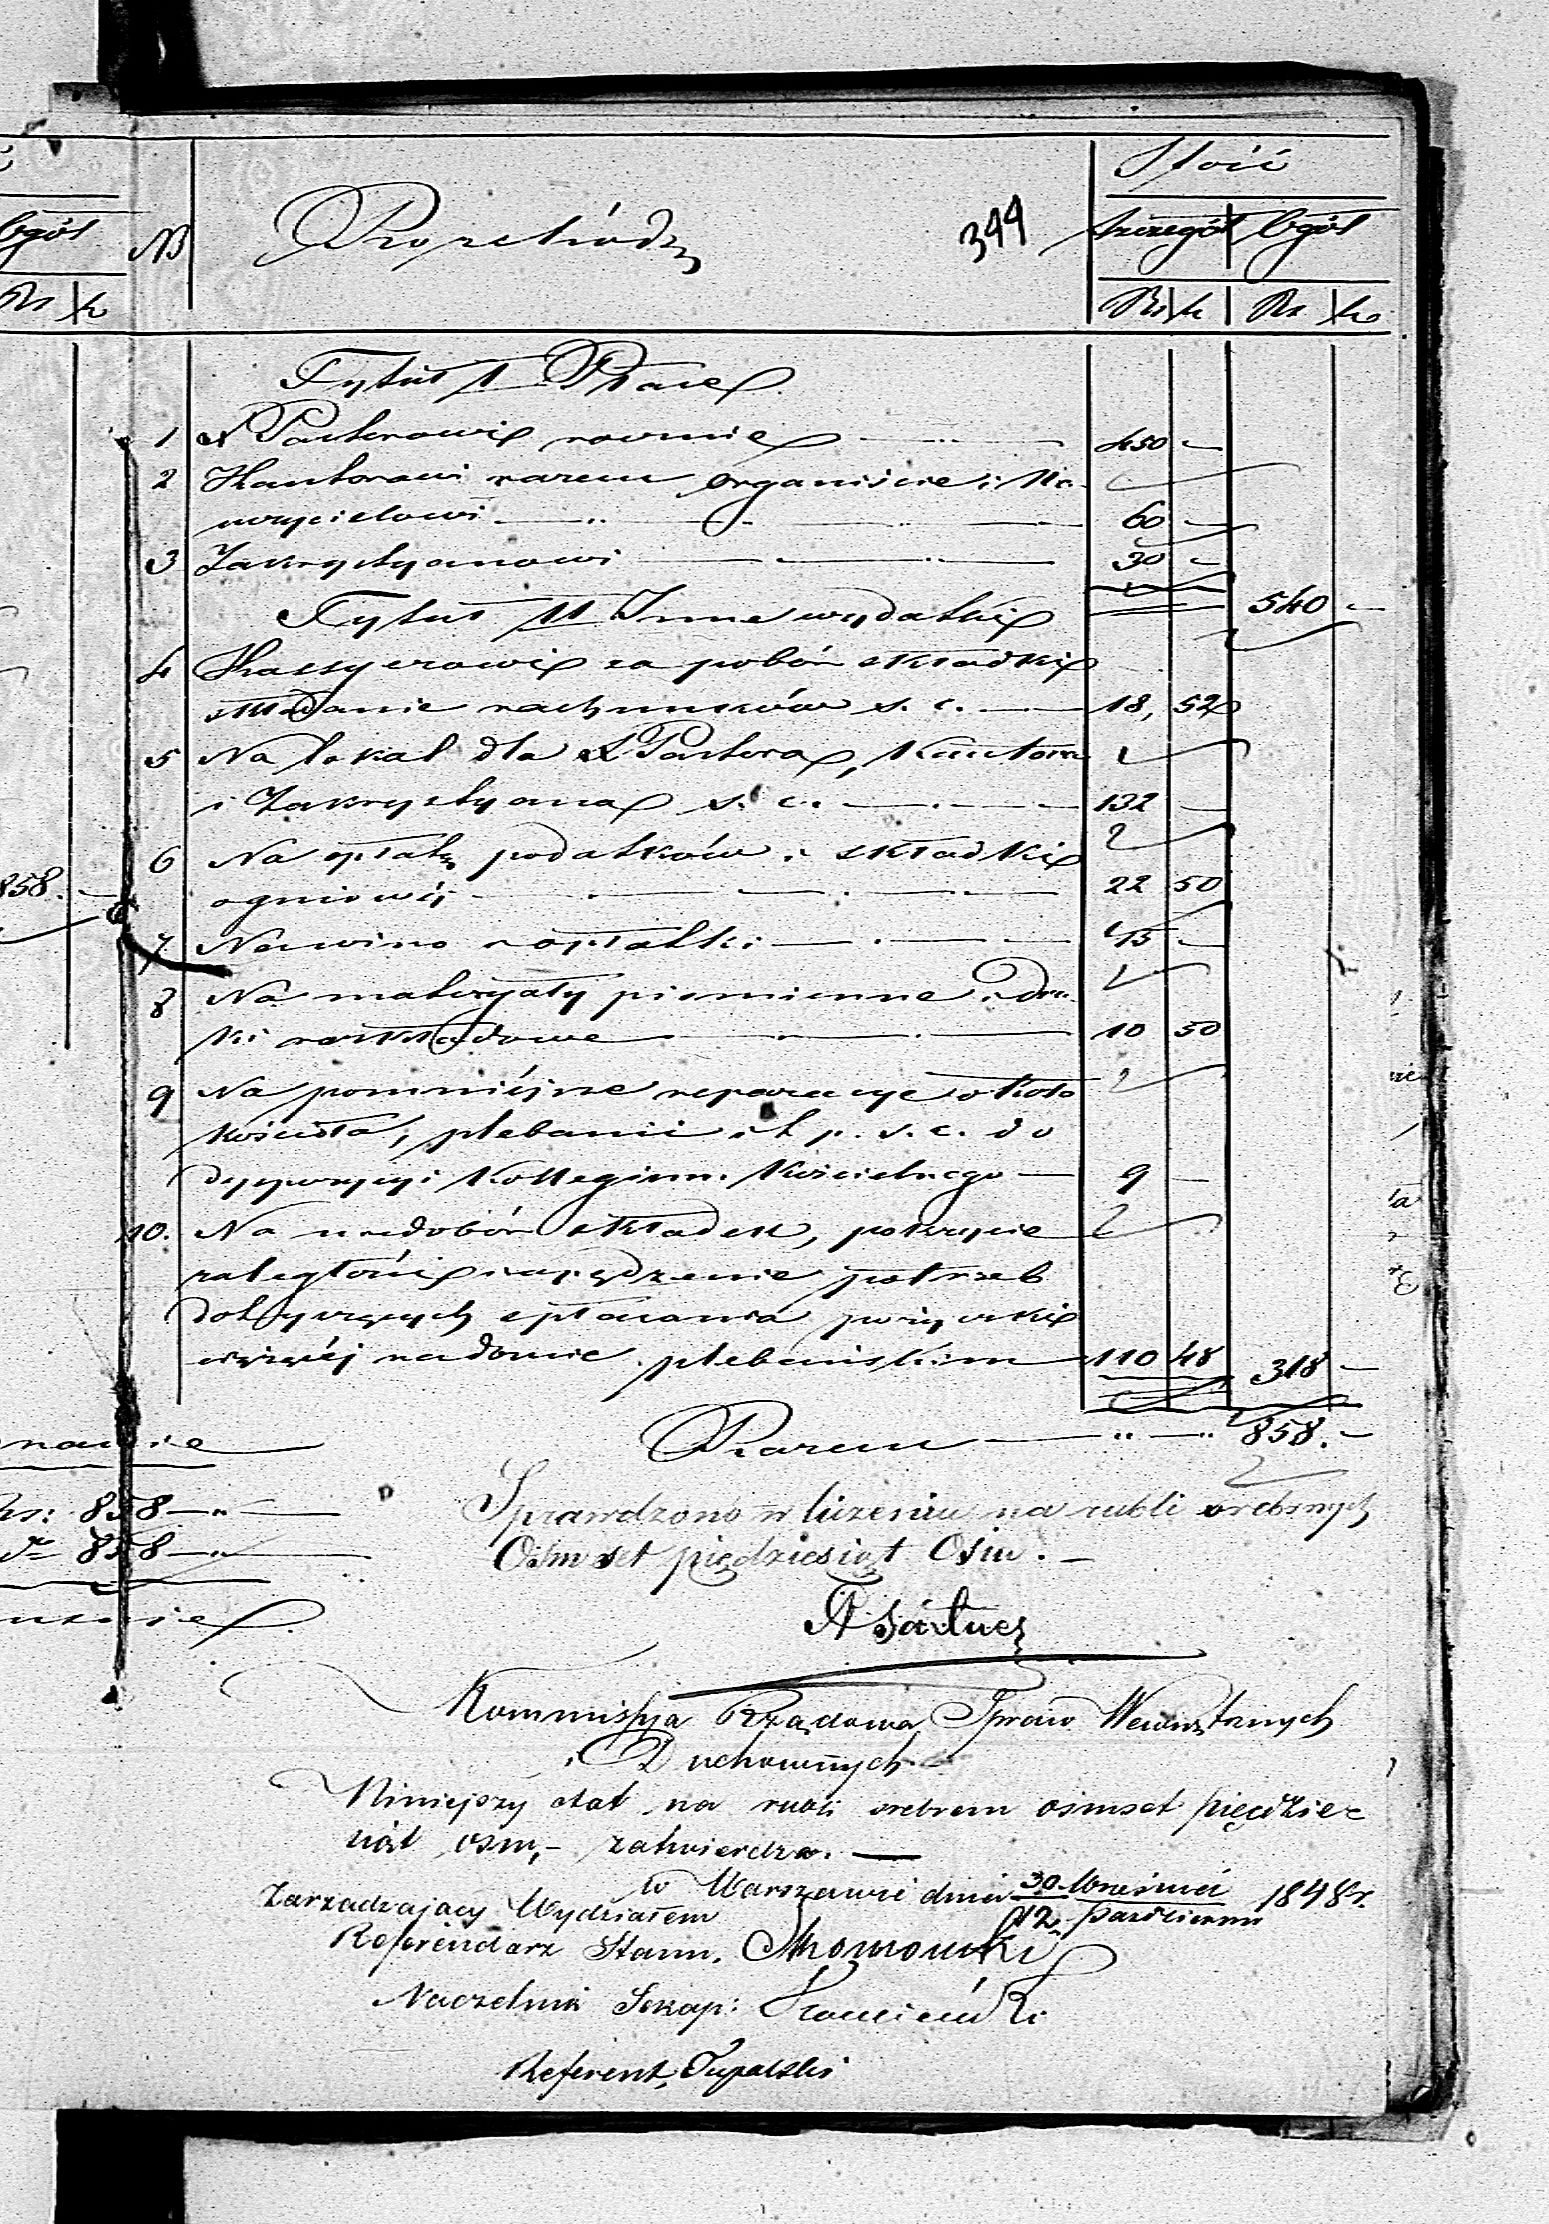 Ilość
Ogół
№
Rozchód
344
Szczegół
Ogół
Rs k
Rs k
Rs k
Tytuł I Płace
1 X Pastorowi rocznie 450 —
2 Kantorowi razem organiście i Na-
uczycielowi 60 —
3 Zakrystyanowi 30 —
540 —
Tytuł II Inne wydatki
4 Kassyerowi za pobór składki
składanie rachunków s. c. 18, 52
5 Na lokal dla X Pastora, Kantora
i Zakrystyana s. c. 132 —
6 Na opłatę podatków i składki
ogniowéj 22 50
858. —
7 Na wino i opłatki 15 —
8 Na materyały piśmienne i dru-
ki rozkładowe 10 50
9 Na pomniéjsze reparacye około
kościoła, plebanii i t. p. s. c. do
dyspozycyi Kollegium Kościelnego 9 —
10. Na niedobór składek, pokrycie
zaległości i zapędzenie potrzeb
dotyczących spłacania pożyczki
ciążącéj na domie plebańskim 110 48 318 —
Razem 858. —
Rs: 858 —
858 —
Sprawdzono w liczeniu na rubli srebrnych
Ośmset pięćdziesiąt Ośm. —
Kommissya Rządowa Spraw Wewnętrznych
i Duchownych
Niniejszy etat na rubli srebrem ośmset pięćdzie-
siąt ośm, — zatwierdza. —
w Warszawie dnia 30 Września
12 Października 1848 r.
Zarządzający Wydziałem
Referendarz Stanu,
Naczelnik Sekcyi:
Referent, Tupalski